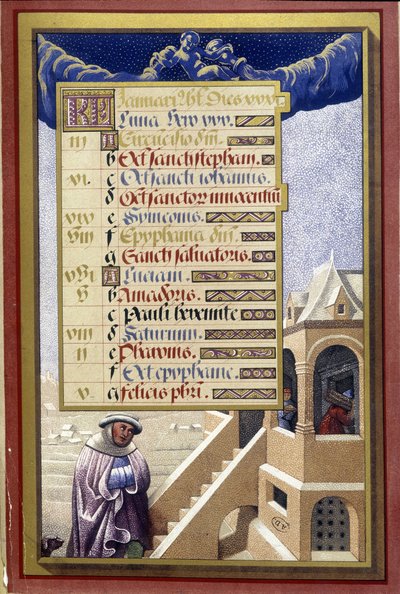 KL Januari9 ht Dies xxxi.
Luna vero xxx.
iii A Circuncisio dni.
b Oct sancti stephani.
xi. c Oct sancti iohannis.
d Oct sanctor innocentium
xix e Symeonis.
viii f Epyphania dni.
g Sancti saluatoris.
xvi A Luciani.
v b Amadoris.
c Pauli heremite
xiii d Saturnini.
ii e
f Oct epyphanie.
x. g felicis pbri.